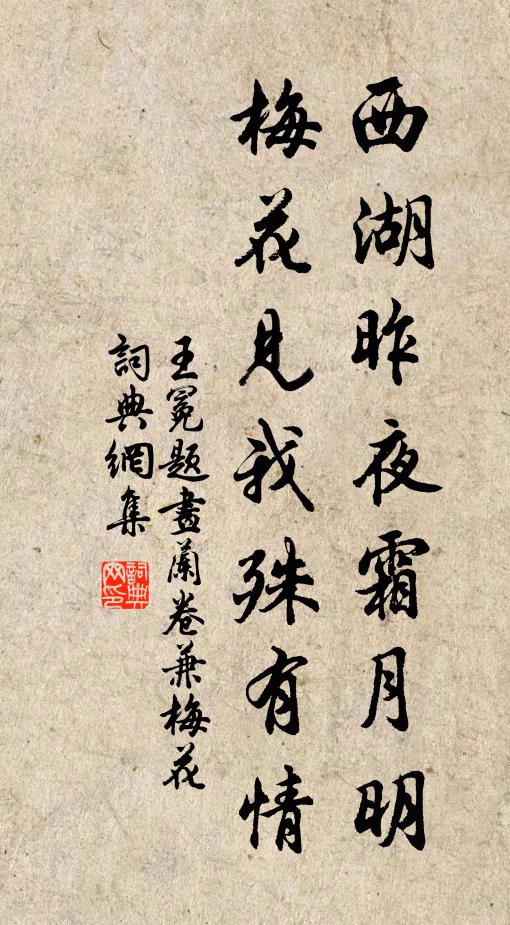 西湖昨夜霜月明
梅花見我殊有情
王冕題畫蘭卷兼梅花
詞典網集
詞典
网印